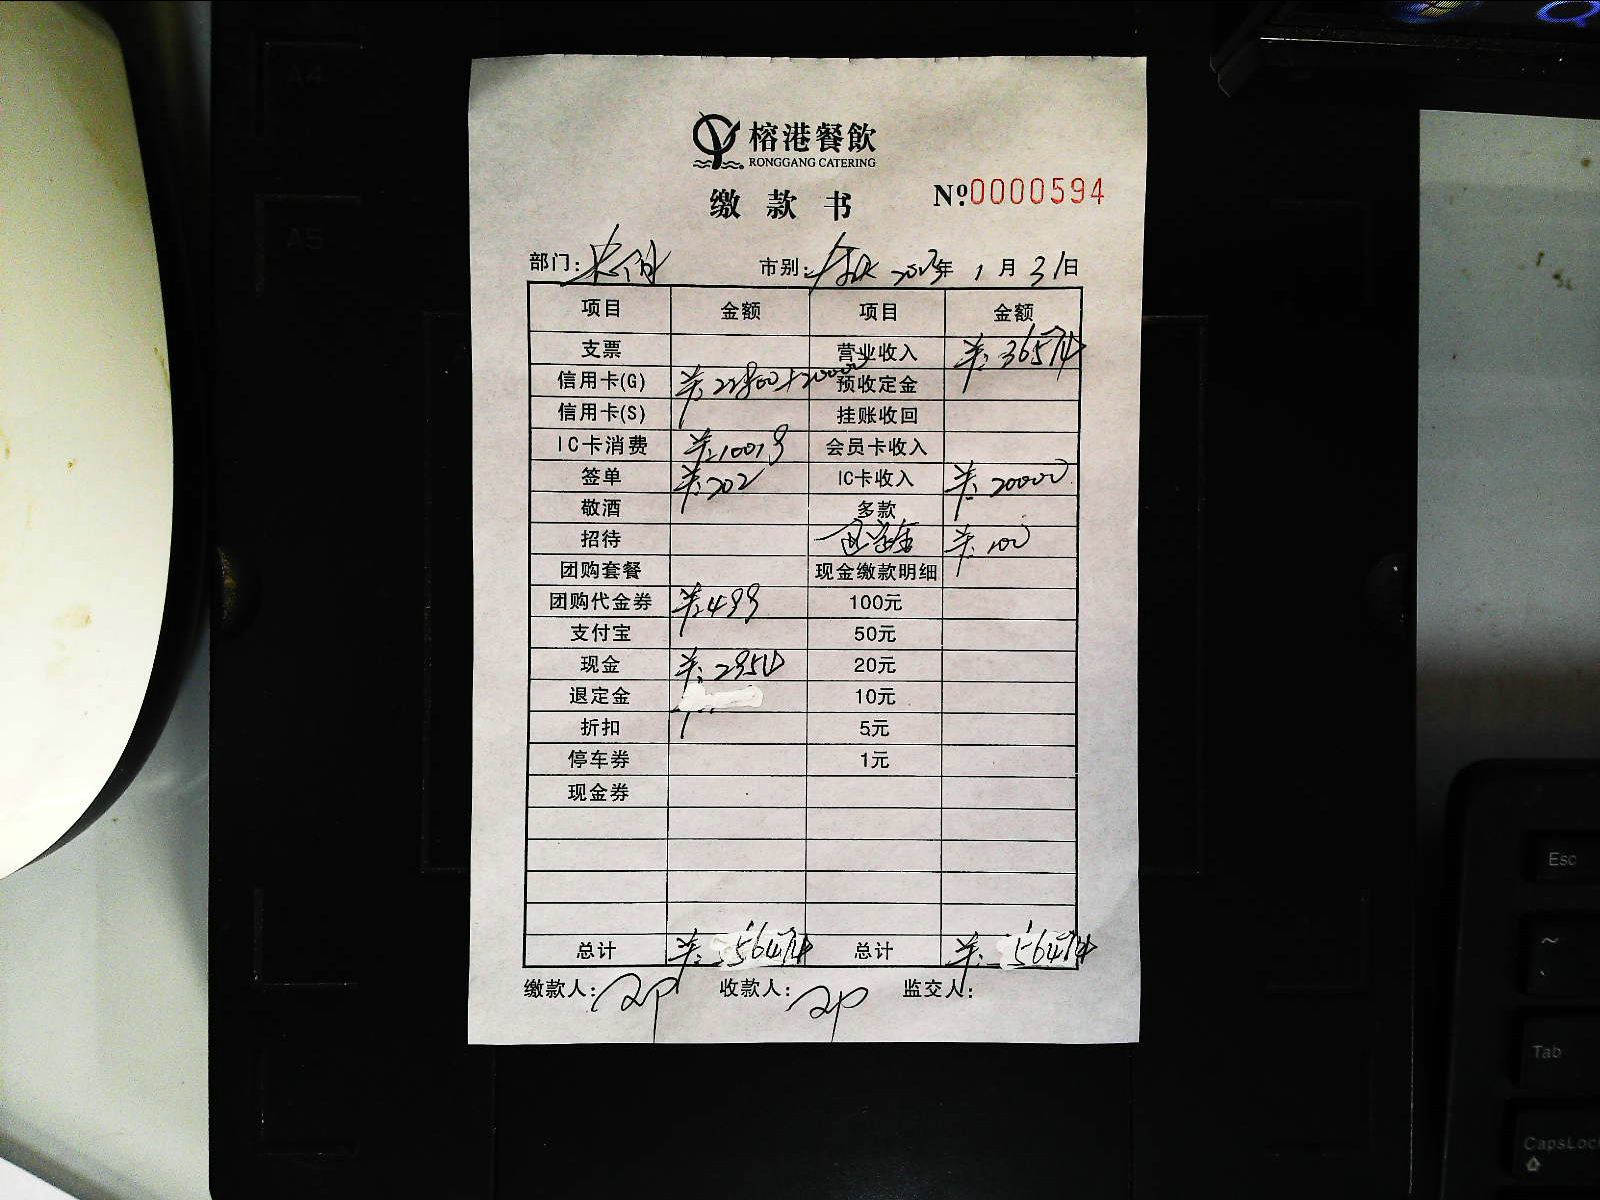 A4
A5
榕港餐飲
RONGGANG CATERING
缴款书 №0000594
部门: 市别: 2023年 1月31日
项目 金额 项目 金额
支票 营业收入 羊:36574
信用卡(G) 羊:22800+20000 预收定金
信用卡(S) 挂账收回
IC卡消费 羊:10019 会员卡收入
签单 羊:202 IC卡收入 羊:20000
敬酒 多款
招待 羊:100
团购套餐 现金缴款明细
团购代金券 羊:499 100元
支付宝 50元
现金 羊:2954 20元
退定金 10元
折扣 5元
停车券 1元
现金券
总计 羊:56474 总计 羊:56474
缴款人: 收款人: 监交人:
Esc
~
Tab
CapsLoc